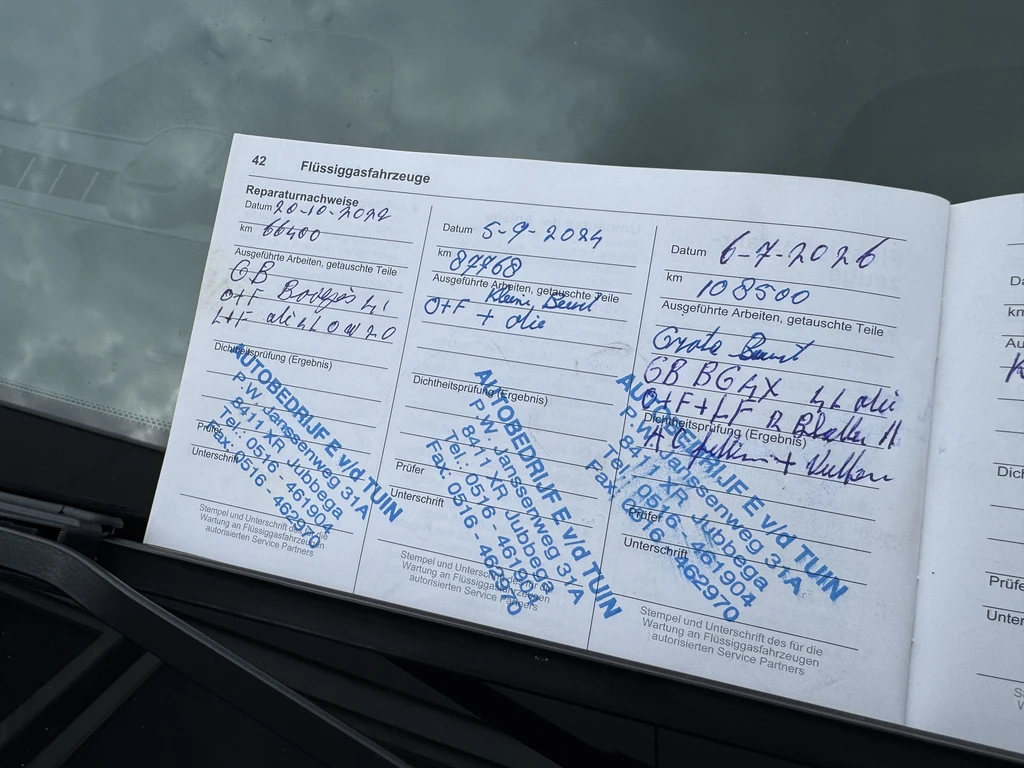 42 Flüssiggasfahrzeuge
Reparaturnachweise
Datum 20-10-2022
km 66400
Ausgeführte Arbeiten, getauschte Teile
GB
O+F
L+F
Dichtheitsprüfung (Ergebnis)
Prüfer
Unterschrift
AUTOBEDRIJF E v/d TUIN
P.W. Janssenweg 31A
8411 XR Jubbega
Tel.: 0516 - 461904
Fax: 0516 - 462970
Stempel und Unterschrift des für die
Wartung an Flüssiggasfahrzeugen
autorisierten Service Partners
Datum 5-9-2024
km 87768
Ausgeführte Arbeiten, getauschte Teile
Kleine Beurt
O+F + olie
Dichtheitsprüfung (Ergebnis)
Prüfer
Unterschrift
AUTOBEDRIJF E v/d TUIN
P.W. Janssenweg 31A
8411 XR Jubbega
Tel.: 0516 - 461904
Fax: 0516 - 462970
Stempel und Unterschrift des für die
Wartung an Flüssiggasfahrzeugen
autorisierten Service Partners
Datum 6-7-2026
km 108500
Ausgeführte Arbeiten, getauschte Teile
Grote Beurt
GB BG 4X 4L olie
O+F+LF R
Dichtheitsprüfung (Ergebnis)
+ Vullen
Prüfer
Unterschrift
AUTOBEDRIJF E v/d TUIN
P.W. Janssenweg 31A
8411 XR Jubbega
Tel.: 0516 - 461904
Fax: 0516 - 462970
Stempel und Unterschrift des für die
Wartung an Flüssiggasfahrzeugen
autorisierten Service Partners
km
Prüfe